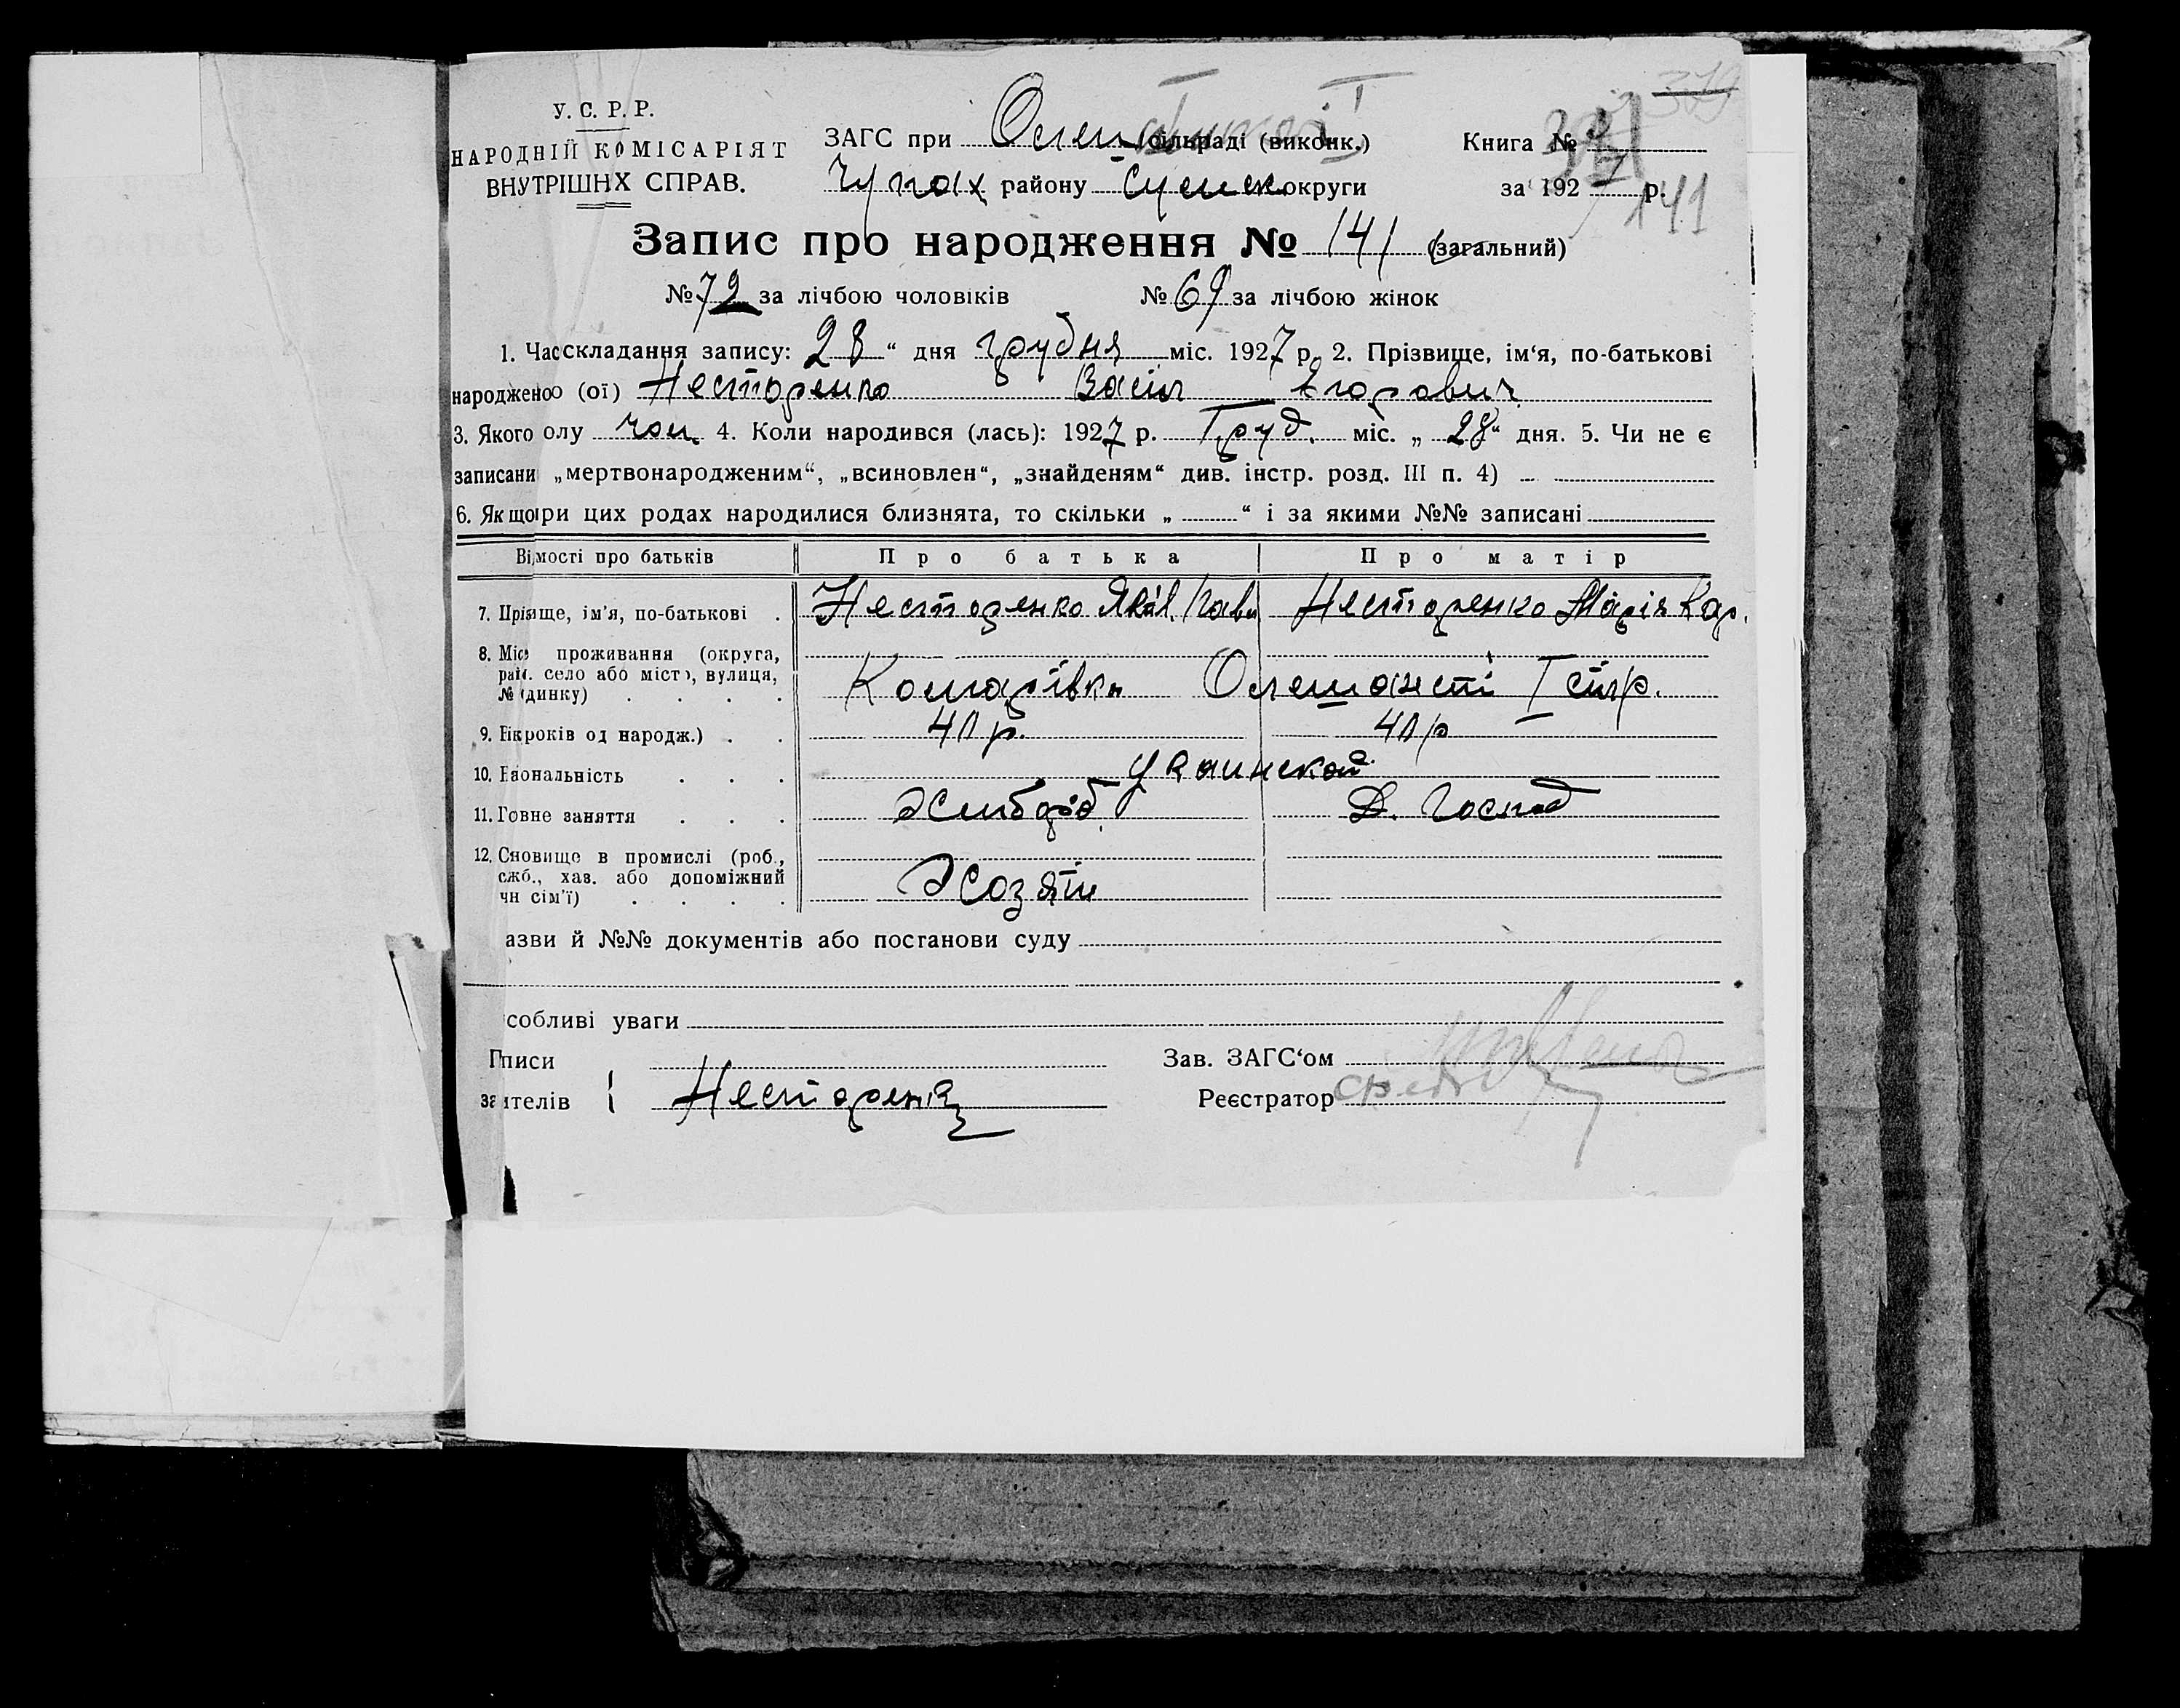 379
У. С. Р. Р.
НАРОДНІЙ КОМІСАРІЯТ
ВНУТРІШНХ СПРАВ.
ЗАГС при Олеш сільраді (виконк.) Книга №
Чупах району Сумск округи за 1927 р.
141
Запис про народження № 141 (загальний)
№ 72 за лічбою чоловіків № 69 за лічбою жінок
1. Час складання запису: 28 “ дня грудня міс. 1927 р. 2. Прізвище, ім‘я, по-батькові
народженоо (ої) Несторенко Васіль Якорович
3. Якого олу чол. 4. Коли народився (лась): 1927 р. Груд. міс. „ 28 “ дня. 5. Чи не є
записани „мертвонародженим“, „всиновлен“, „знайденям“ див. інстр. розд. III п. 4)
6. Якщо ри цих родах народилися близнята, то скільки „ “ і за якими №№ записані
Відмості про батьків Про батька Про матір
7. Прізище, ім'я, по-батькові Несторенко Яків. Павл Несторенко Марія Кар.
8. Місе проживання (округа,
рай. село або місто, вулиця,
№ динку) Комарівка Олешансті I сілр.
9. Вік років од народж.) 40 р. 40 р
10. Нзіональність Украинской
11. Говне заняття Хлібороб. Д. Господ
12. Сновище в промислі (роб.,
сжб., хаз. або допоміжний
чн сім'ї) Хозяїн
азви й №№ документів або постанови суду
собливі уваги
Пписи Зав. ЗАГС‘ом
заителів Несторенко Реєстратор